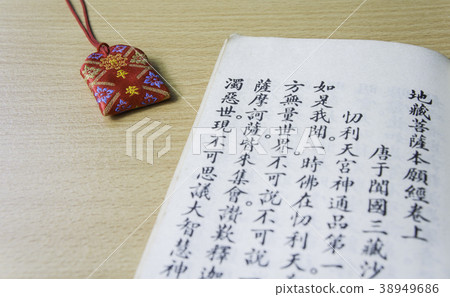 地藏菩薩本願經卷上
唐于闐國三藏沙
忉利天宮神通品第一
如是我聞。時佛在忉利天
方無量世界不可說不可說
薩摩訶薩。皆來集會。讚歎釋迦
濁惡世現不可思議大智慧神
平安
PIXTA
38949686